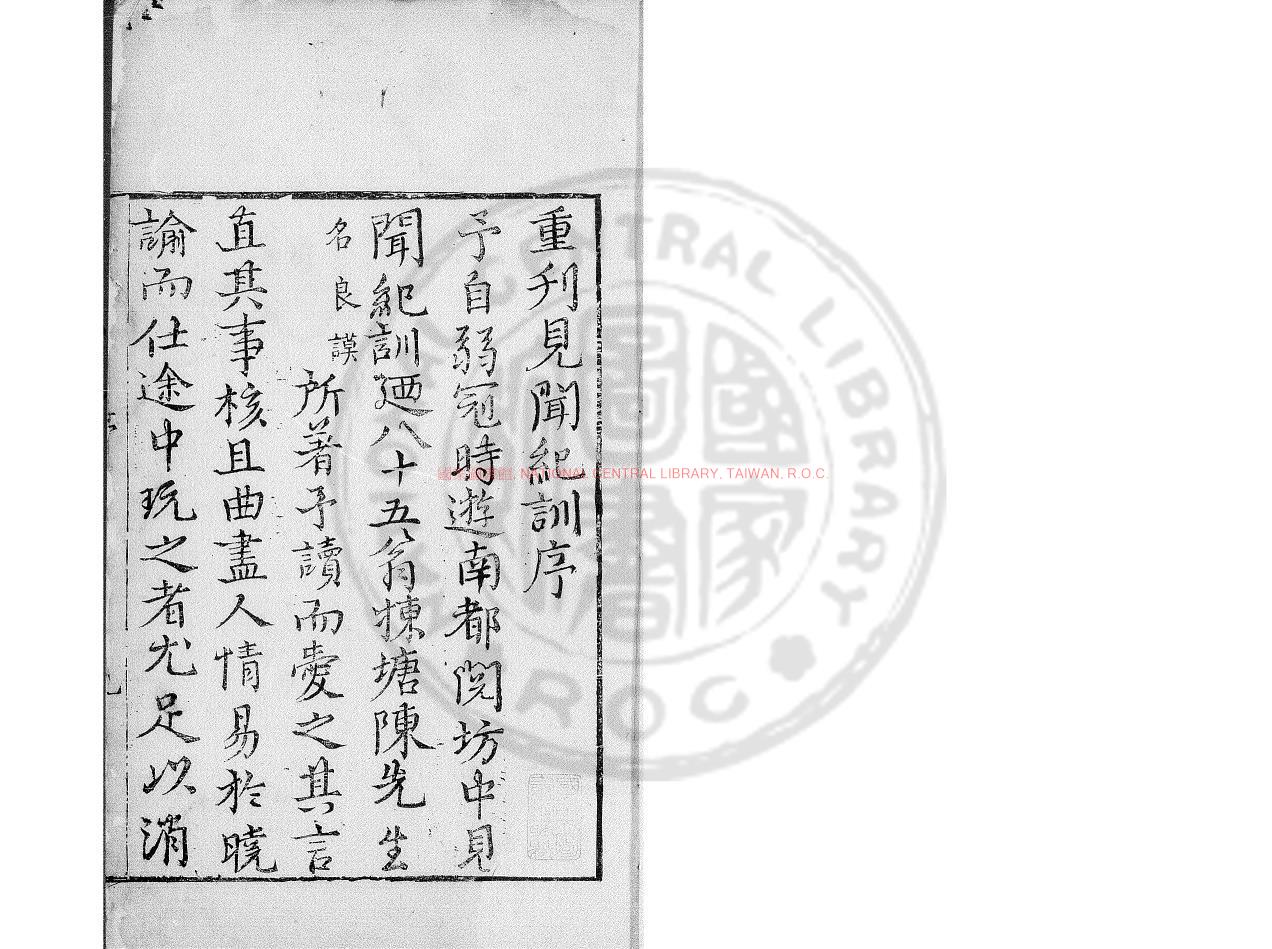 重刋見聞紀訓序
予自弱冠時遊南都閱坊中見
聞紀訓廼八十五翁棟塘陳先生
名良謨
所著予讀而愛之其言
直其事核且曲盡人情易於曉
諭而仕途中玩之者尤足以消
NATIONAL CENTRAL LIBRARY, TAIWAN, R.O.C.
CENTRAL LIBRARY
ROC